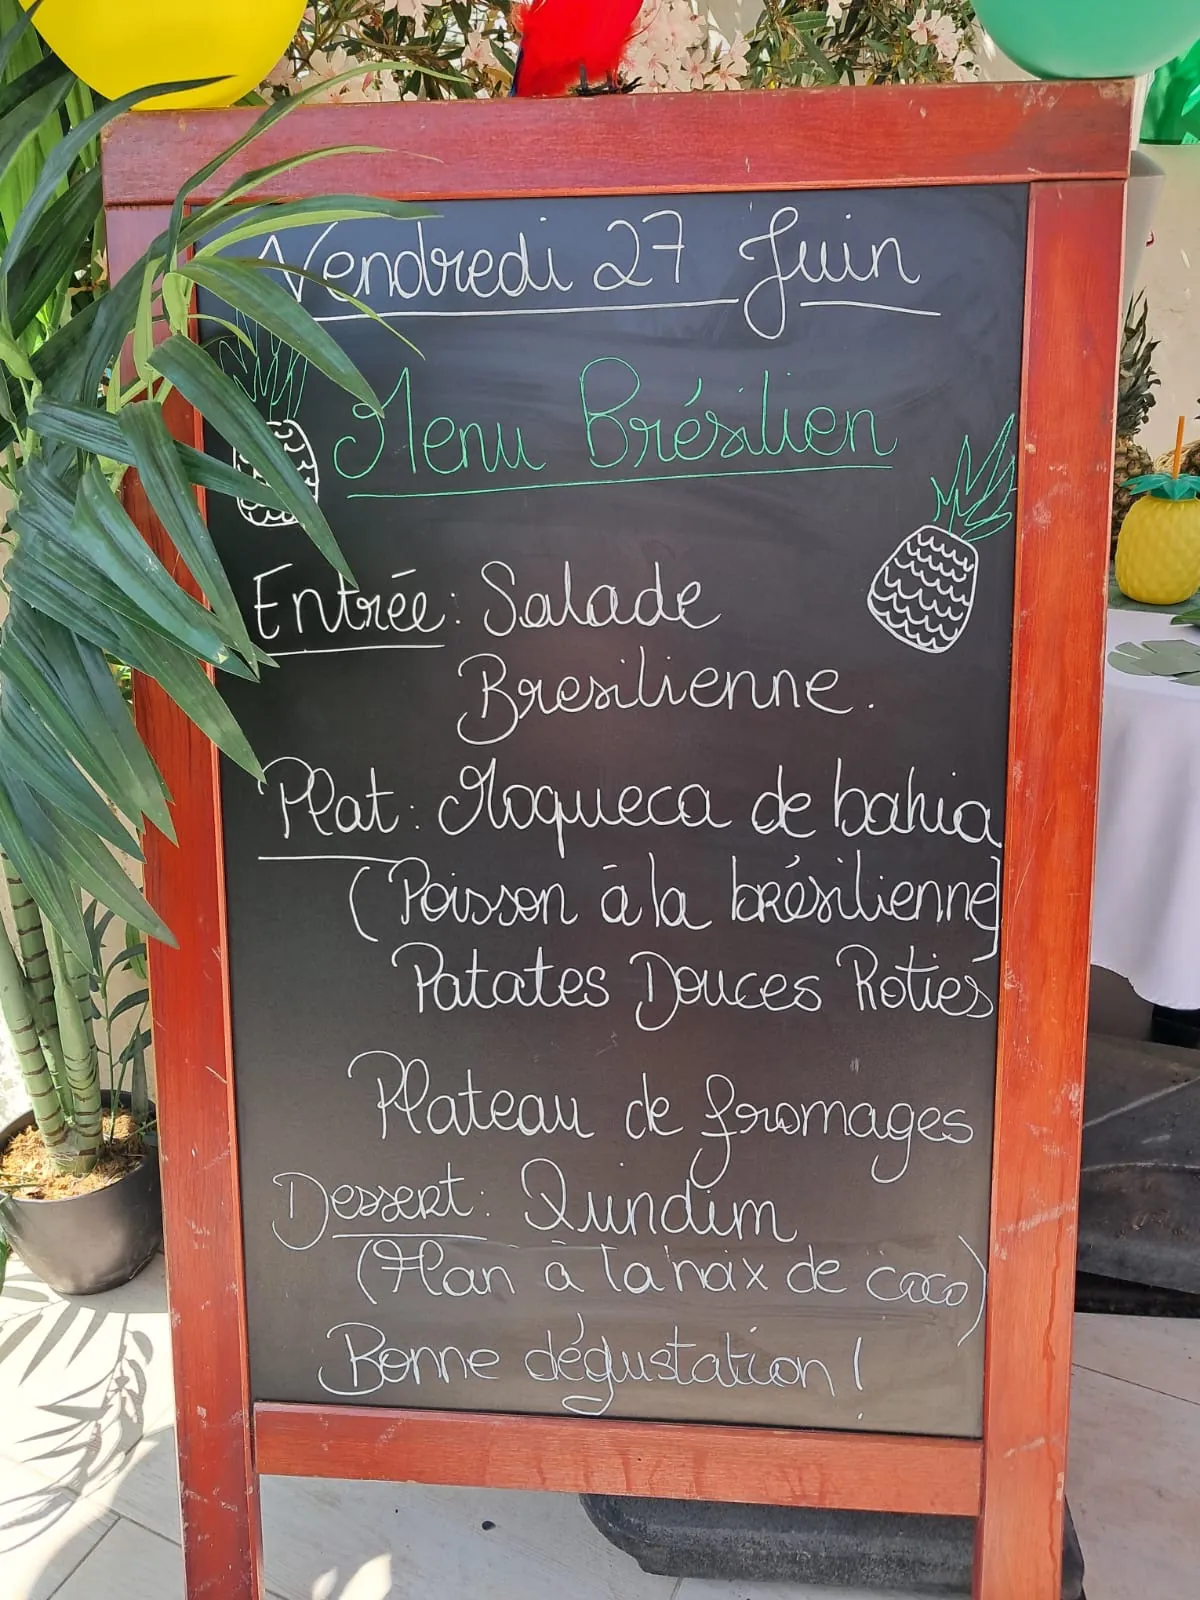 Vendredi 27 Juin
Menu Brésilien
Entrée : Salade
Bresilienne.
Plat : Moqueca de bahia
(Poisson à la brésilienne)
Patates Douces Roties
Plateau de fromages
Dessert : Quindim
(Flan à la noix de coco)
Bonne dégustation !